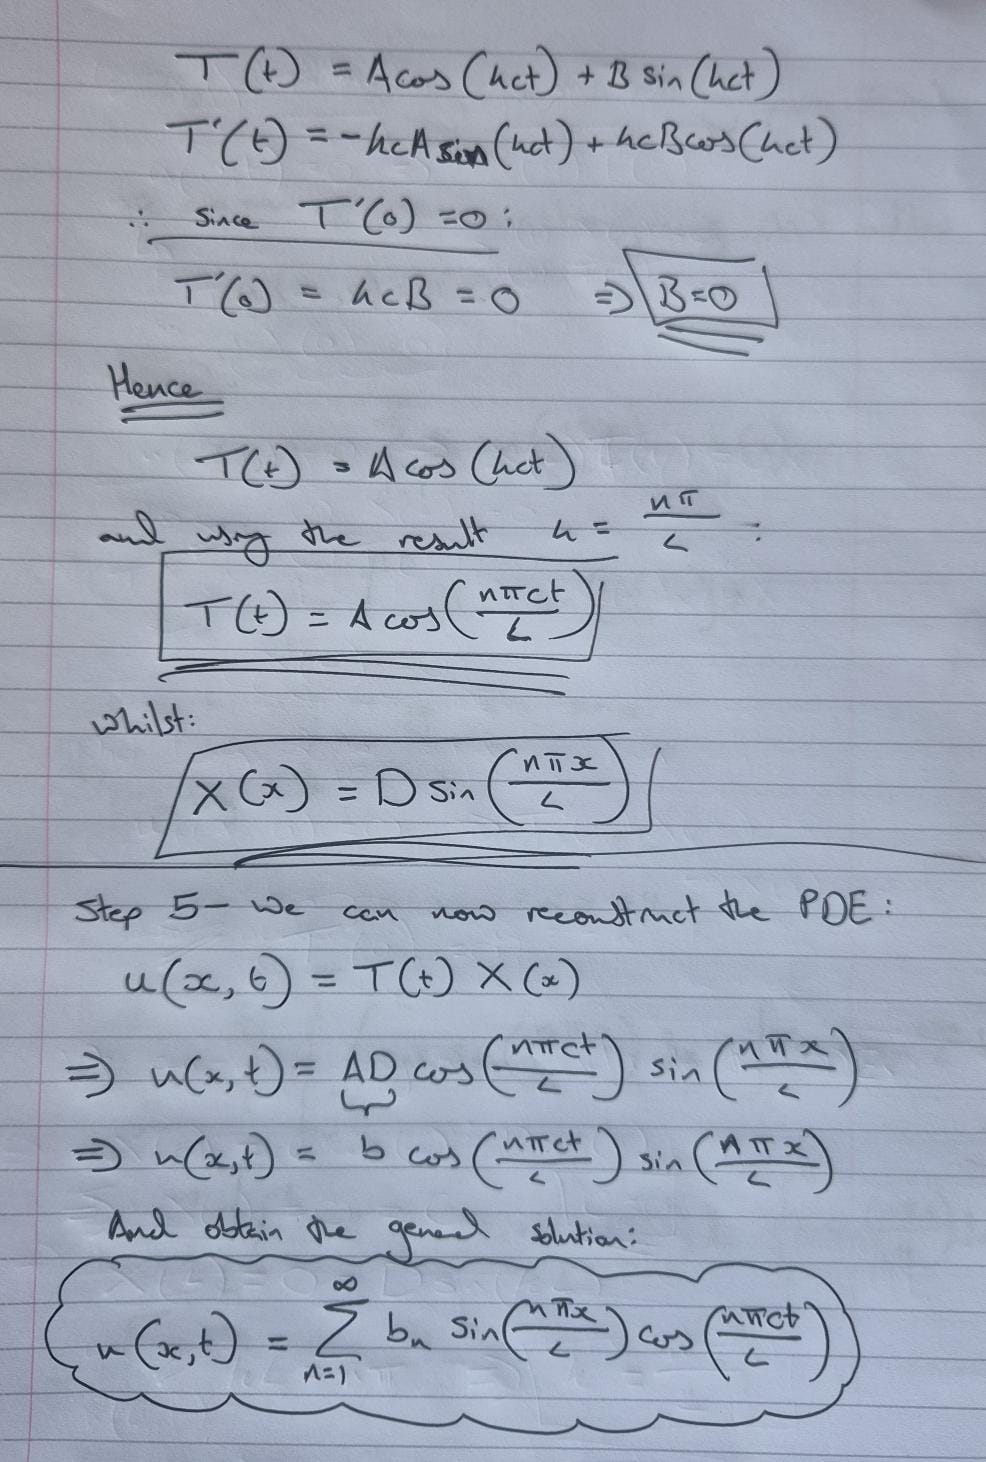 T(t) = A cos(hct) + B sin(hct)
T'(t) = -hcA sin(hct) + hcB cos(hct)
∴ since T'(0) = 0:
T'(0) = hcB = 0 ⇒ B=0
Hence
T(t) = A cos(hct)
and using the result h = nπ/L :
T(t) = A cos(nπct/L)
whilst:
X(x) = D sin(nπx/L)
Step 5 - We can now reconstruct the PDE:
u(x,t) = T(t) X(x)
⇒ u(x,t) = AD cos(nπct/L) sin(nπx/L)
⇒ u(x,t) = b cos(nπct/L) sin(nπx/L)
And obtain the general solution:
u(x,t) = ∑_{n=1}^{∞} bₙ sin(nπx/L) cos(nπct/L)